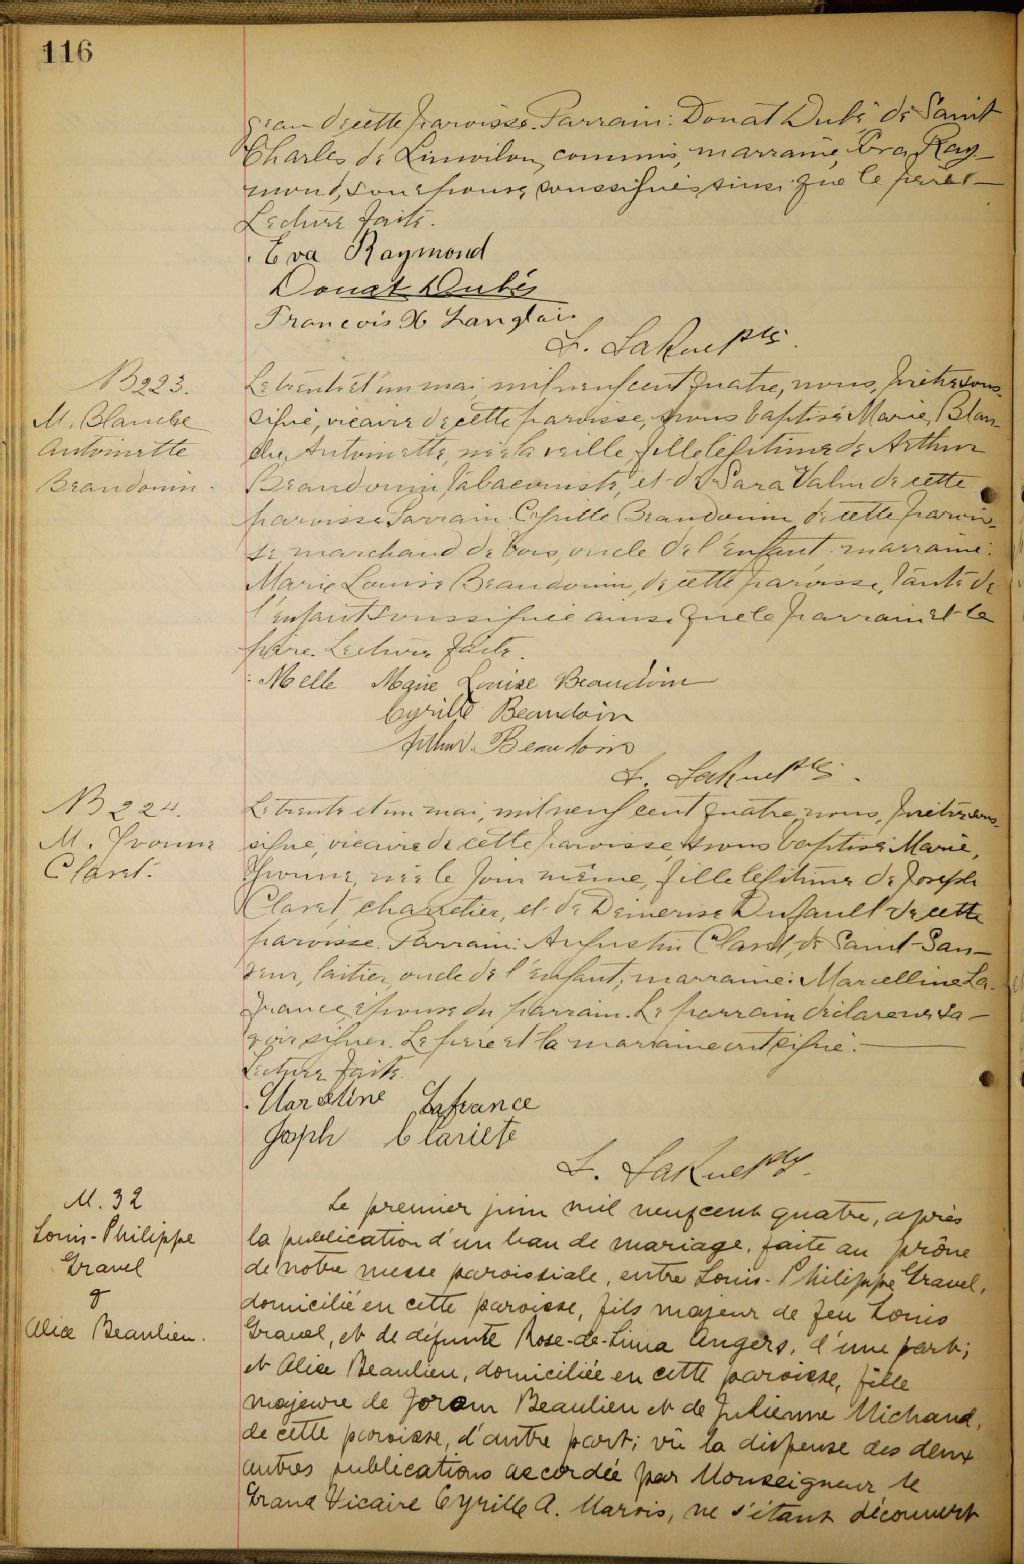 116
de cette paroisse. Parrain: Donat Dubé de Saint
Charles de Limoilou, commis, marraine, Eva Ray-
mond, son épouse, soussignés ainsi que le père.—
Lecture faite.
Eva Raymond
Donat Dubés
François X Langlais
B223.
M. Blanche
Antoinette
Beaudouin.
Le trente et un mai, mil neuf cent quatre, nous, prêtre sous-
signé, vicaire de cette paroisse, avons baptisé Marie, Blan-
che, Antoinette, née la veille, fille légitime de Arthur
Beaudouin, tabaconiste, et de Sara Valin de cette
paroisse. Parrain: Cyrille Beaudouin de cette parois-
se marchand de bois, oncle de l'enfant: marraine:
Marie Louise Beaudouin, de cette paroisse, tante de
l'enfant soussignée ainsi que le parrain et le
père. Lecture faite.
Melle Marie Louise Beaudoin
Cyrille Beaudoin
Arthur Beaudoin
B224.
M. Yvonne
Claret.
Le trente et un mai, mil neuf cent quatre, nous, prêtre sous-
signé, vicaire de cette paroisse, avons baptisé Marie,
Yvonne, née le jour même, fille légitime de Joseph
Claret, charretier, et de Démerise Dufault de cette
paroisse. Parrain: Augustin Claret, de Saint-Sau-
veur, laitier, oncle de l'enfant; marraine: Marcelline La-
france, épouse du parrain. Le parrain déclare ne sa-
voir signer. Le père et la marraine ont signé.—
Lecture faite.
Marceline Lafrance
Joseph Clariete
M. 32
Louis-Philippe
Gravel
&
Alice Beaulieu.
Le premier juin mil neuf cent quatre, après
la publication d'un ban de mariage, faite au prône
de notre messe paroissiale, entre Louis-Philippe Gravel,
domicilié en cette paroisse, fils majeur de feu Louis
Gravel, et de défunte Rose-de-Lima Angers, d'une part;
et Alice Beaulieu, domiciliée en cette paroisse, fille
majeure de Joram Beaulieu et de Julienne Michaud,
de cette paroisse, d'autre part; vu la dispense des deux
autres publications accordée par Monseigneur le
Grand Vicaire Cyrille A. Marois, ne s'étant découvert